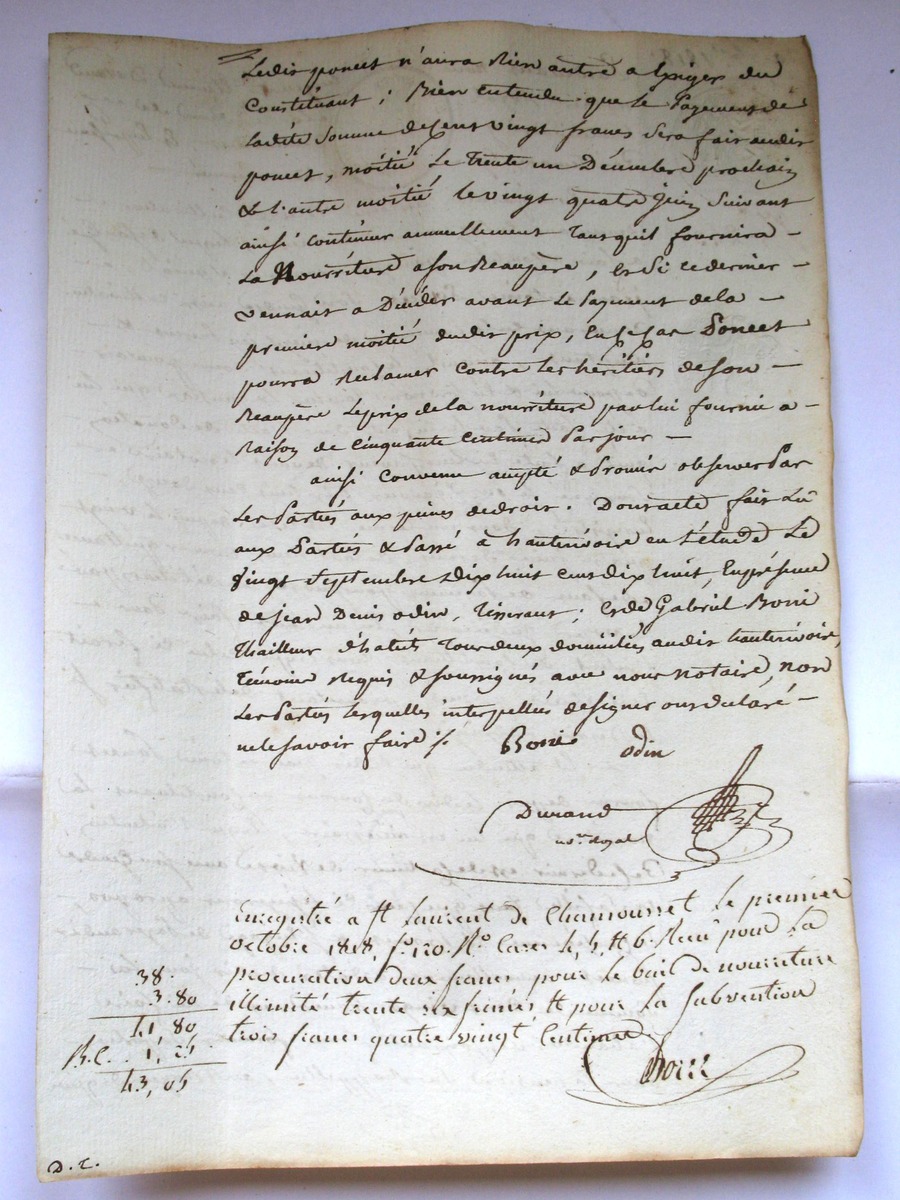 Ledit poncet n'aura Rien autre a Exiger du
Constituant ; Bien entendu que le Payement de
ladite Somme de cent vingt francs Sera fait audit
poncet, moitié Le Trente un Décembre prochain
& l'autre moitié le vingt quatre Juin Suivant
ainsi Continuer annuellement Tant quil fournira —
La Nourriture a son Beaupère, Et Si ce dernier —
vennait a Décéder avant Le Payement de la —
premiere moitié dudit prix, En ce cas Poncet
pourra Réclamer Contre les héritiers de son —
Beaupère Le prix de la nourriture par lui fournie a —
Raison de Cinquante Centimes Par jour —
ainsi Convenu accepté & Promis observer Par
Les Parties aux peines de droit. Dont acte fait Lû
aux Parties & Passé à hauterivoire en L'étude Le
Vingt Septembre Dix huit cent dix huit, En présence
de jean Denis odin, Tisserant ; Et de Gabriel Boni
Thailleur d'habits Tous deux domiciliés audit hauterivoire,
Témoins Requis & soussignés avec nous Notaire, non
Les Parties lesquelles interpellées de signer ont déclaré —
ne le savoir faire ./.
Boni odin
Durand
no.re Royal
Enregistré a St Laurent de Chamousset Le premier
octobre 1818, f.o 120. R.o Cases 4, 5, et 6. Reçu pour La
procuration deux francs pour le bail de nourriture
illimité trente six francs, et pour la subvention
trois francs quatre vingt Centimes
38.
3.80
41,80
B.C. . 1,25
43,05
D. T.